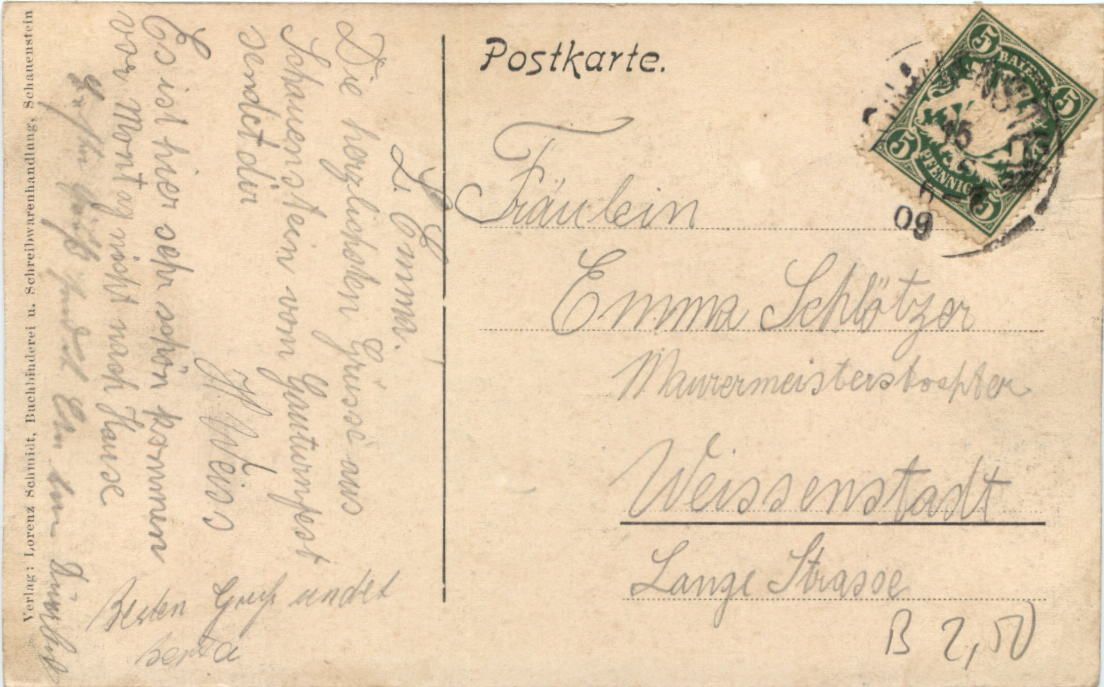 Postkarte.
5 BAYERN 5
5 PFENNIG 5
15
09
L. Emma.
Die herzlichsten Grüsse aus
Schauenstein vom Gauturnfest
sendet dir
H. Weiss
Es ist hier sehr schön kommen
vor Montag nicht nach Hause
Besten Gruß sendet
Berta
Verlag: Lorenz Schmidt, Buchbinderei u. Schreibwarenhandlung, Schauenstein
Fräulein
Emma Schlötzer
Maurermeisterstochter
Weissenstadt
Lange Strasse
B 2,50